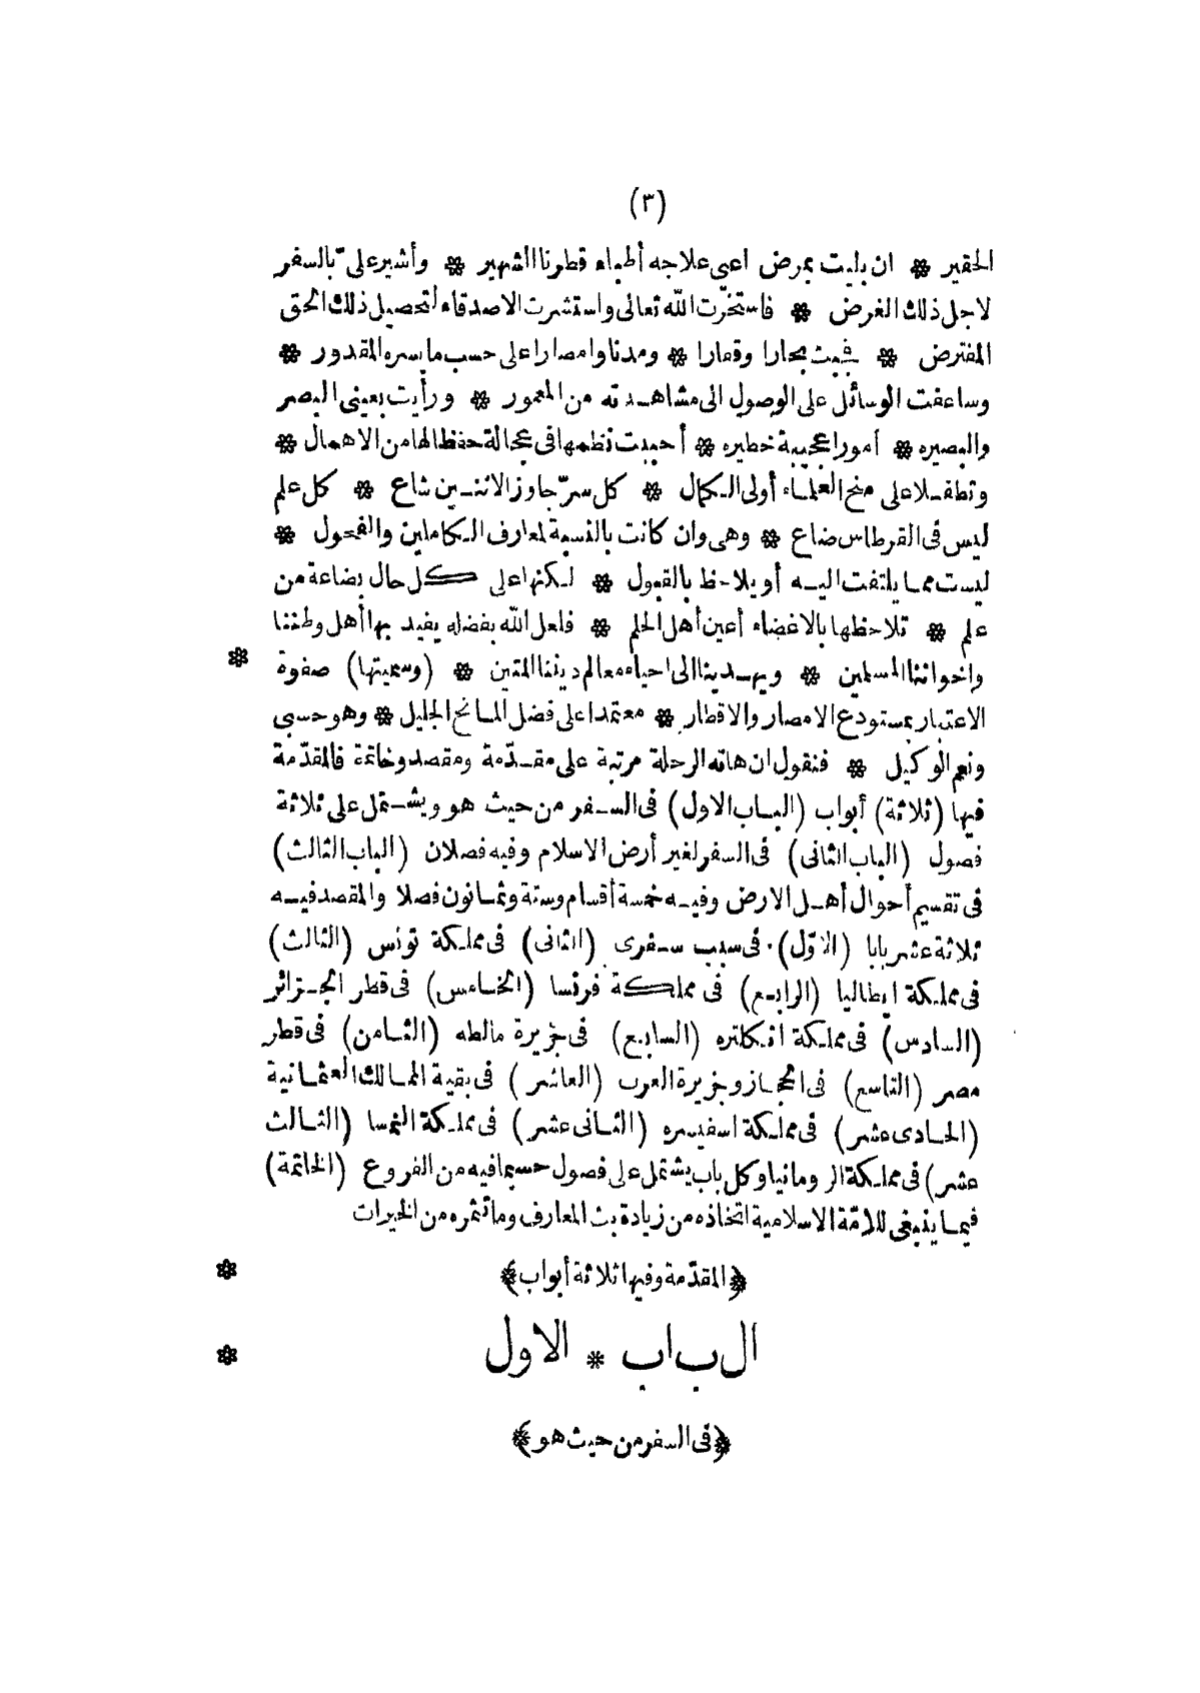 (٣)
الحقير * ان بليت بمرض اعيى علاجه أطباء قطرنا الشهير * وأشير علىّ بالسفر
لاجل ذلك الغرض * فاستخرت الله تعالى واستشرت الاصدقاء لتحصيل ذلك الحق
المفترض * فجبت بحارا وقفارا * ومدنا وامصارا على حسب ما يسره المقدور *
وساعفت الوسائل على الوصول الى مشاهدته من المعمور * ورأيت بعينى البصر
والبصيره * أمورا عجيبة خطيره * أحببت نظمها فى عجالة حفظا لها من الاهمال *
وتطفلا على منح العلماء أولى الكمال * كل سرّ جاوز الاثنين شاع * كل علم
ليس فى القرطاس ضاع * وهى وان كانت بالنسبة لمعارف الكاملين والفحول *
ليست مما يلتفت اليه أو يلاحظ بالقبول * لكنها على كل حال بضاعة من
علم * تلاحظها بالاغضاء أعين أهل الحلم * فلعل الله بفضله يفيد بها أهل وطننا
واخواننا المسلمين * ويهدينا الى احياء معالم ديننا المتين * (وسميتها) صفوة *
الاعتبار بمستودع الامصار والاقطار * معتمدا على فضل المانح الجليل * وهو حسبى
ونعم الوكيل * فنقول ان هاته الرحلة مرتبة على مقدّمة ومقصد وخاتمة فالمقدّمة
فيها (ثلاثة) أبواب (الباب الاول) فى السفر من حيث هو ويشتمل على ثلاثة
فصول (الباب الثانى) فى السفر لغير أرض الاسلام وفيه فصلان (الباب الثالث)
فى تقسيم أحوال أهل الارض وفيه خمسة أقسام وستة وثمانون فصلا والمقصد فيه
ثلاثة عشر بابا (الاوّل) فى سبب سفرى (الثانى) فى مملكة تونس (الثالث)
فى مملكة ايطاليا (الرابع) فى مملكة فرنسا (الخامس) فى قطر الجزائر
(السادس) فى مملكة انكلتره (السابع) فى جزيرة مالطه (الثامن) فى قطر
مصر (التاسع) فى الحجاز وجزيرة العرب (العاشر) فى بقية الممالك العثمانية
(الحادى عشر) فى مملكة اسفيسره (الثانى عشر) فى مملكة النمسا (الثالث
عشر) فى مملكة الرومانيا وكل باب يشتمل على فصول حسبما فيه من الفروع (الخاتمة)
فيما ينبغى للامّة الاسلامية اتخاذه من زيادة بث المعارف وما تثمره من الخيرات
﴿المقدّمة وفيها ثلاثة أبواب﴾ *
الباب * الاول *
﴿فى السفر من حيث هو﴾